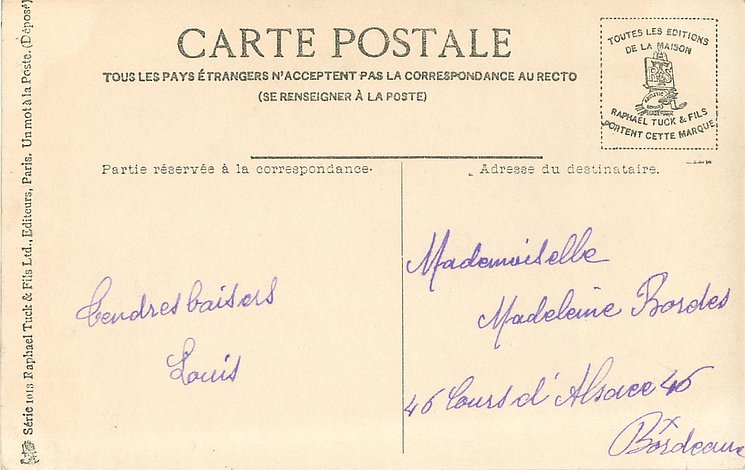 CARTE POSTALE
TOUS LES PAYS ÉTRANGERS N'ACCEPTENT PAS LA CORRESPONDANCE AU RECTO
(SE RENSEIGNER À LA POSTE)
TOUTES LES EDITIONS
DE LA MAISON
RAPHAEL TUCK & FILS
PORTENT CETTE MARQUE
Partie réservée à la correspondance.
Adresse du destinataire.
Tendres baisers
Louis
Mademoiselle
Madeleine Bordes
46 Cours d'Alsace 46
Bordeaux
Série 1013 Raphael Tuck & Fils Ltd., Editeurs, Paris. Un mot à la Poste. (Déposé)